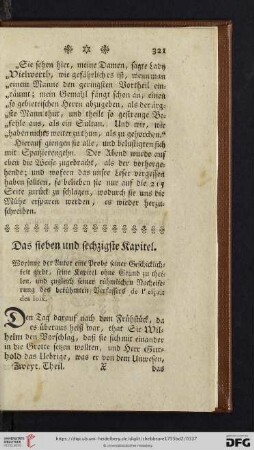 321
„Sie sehen hier, meine Damen, sagte Lady
Vielworth, wie gefährliches ist, wenn man
„einem Manne den geringsten Vortheil ein-
„räumt; mein Gemahl fängt schon an, einen
„so gebietrischen Herrn abzugeben, als der ärg-
„ste Mann thut, und theilt so gestrenge Be-
„fehle aus, als ein Sultan. Und wir, wir
„haben nichts weiter zu thun, als zu gehorchen.“
Hierauf giengen sie alle, und belustigten sich
mit Spatzierengehn. Der Abend wurde auf
eben die Weise zugebracht, als der vorherge-
hende; und wofern das unser Leser vergessen
haben sollten, so belieben sie nur auf die 215
Seite zurück zu schlagen, wodurch sie uns die
Mühe ersparen werden, es wieder herzu-
schreiben.
Das sieben und sechzigste Kapitel.
Worinne der Autor eine Probe seiner Geschicklich-
keit giebt, seine Kapitel ohne Grund zu thei-
len, und zugleich seiner rühmlichen Nacheife-
rung des berühmten Verfassers de
Den Tag darauf nach dem Frühstück, da
es überaus heiß war, that Sir Wil-
helm den Vorschlag, daß sie sich mit einander
in die Grotte setzen wollten, und Herr
hold das Uebrige, was er von dem Unwesen,
Zweyt. Theil. X das